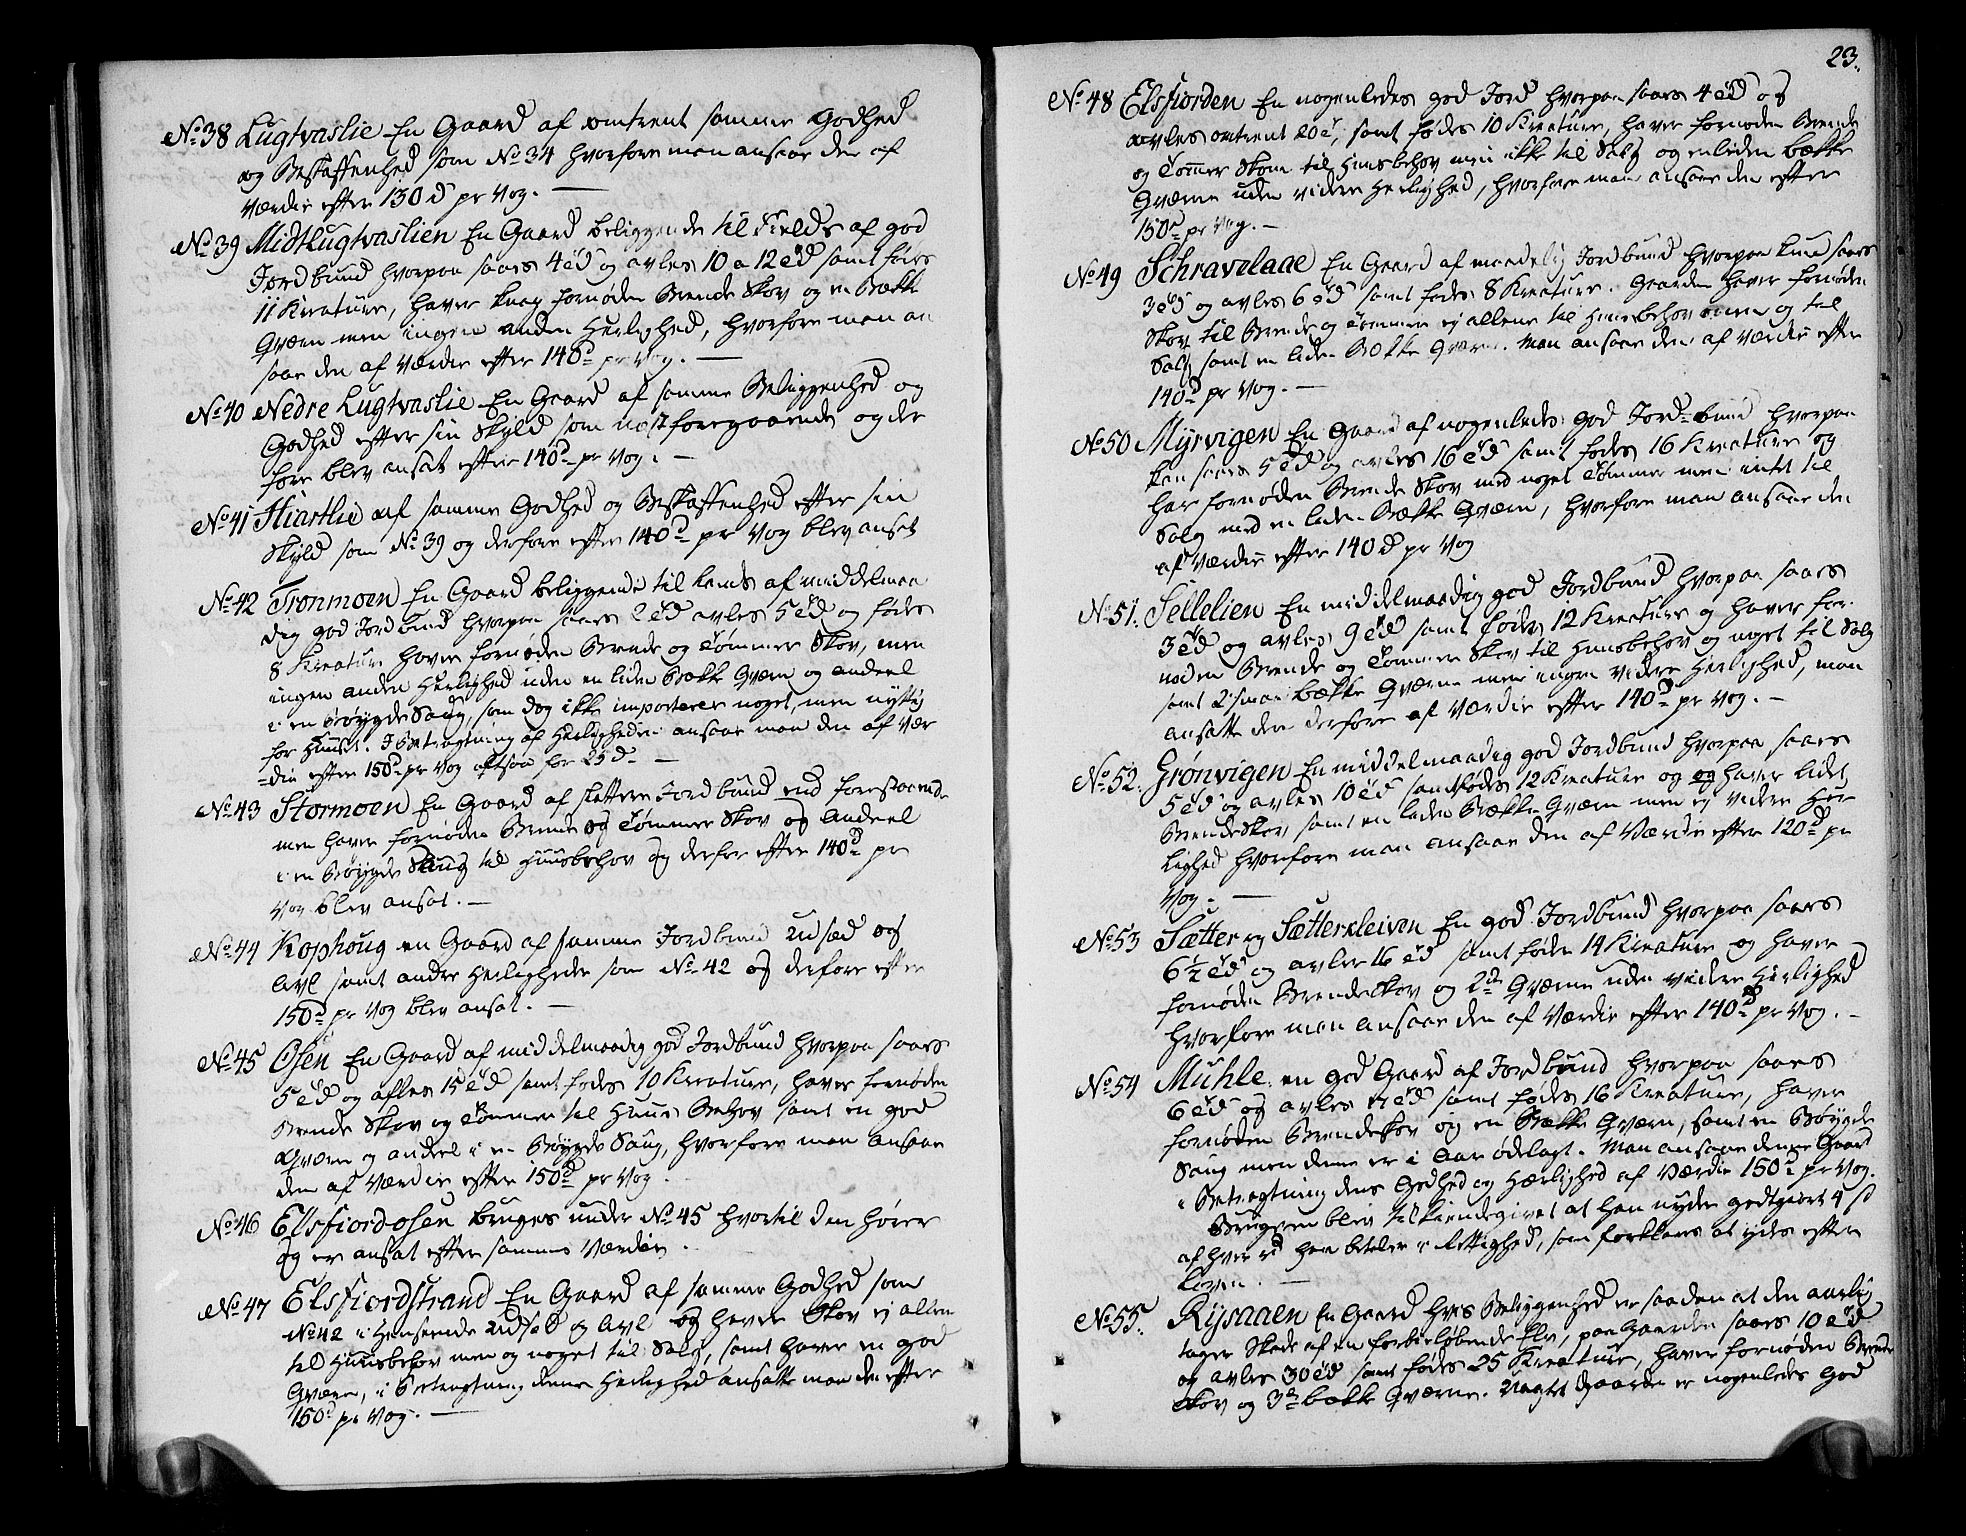 No 38 Lugtvaslie En Gaard af omtrent samme Godhed
og Beskaffenhed som No 34 hvorfore man ansaae den af
Værdie efter 130 d pr Vog. —
No 39 MidtLugtvaslien En Gaard beliggende til Fields af god
Jordbund hvorpaa saaes 4 td og avles 10 a 12 td samt føes
11 Kreature, haver knap fornøden Brende Skov og en Bække
Qværn men ingen anden Herlighed, hvorfore man an
saae den af Værdie efter 140 d pr Vog. —
No 40 Nedre Lugtvaslie En Gaard af samme Beliggenhed og
Godhed efter sin Skyld som næstforegaaende og der
fore blev ansat efter 140 d pr Vog. —
No 41 Hiartlie af samme Godhed og Beskaffenhed efter sin
Skyld som No 39 og derfore efter 140 d pr Vog blev ansat
No 42 Tronmoen En Gaard beliggende til Lands af middelmaa
dig god Jordbund hvorpaa saaes 2 td avles 5 td og fødes
8 Kreature haver fornøden Brende og Tømmer Skov, men
ingen anden Herlighed uden en liden Bække Qværn og andeel
i en Bøygde Saug, som dog ikke importerer noget, men nyttig
for Huuset. I Betragtning af Herligheden ansaae man den af Vær
die efter 150 d pr Vog altsaa for 25 d —
No 43 Stormoen En Gaard af slettere Jordbund end forestaaende
men haver fornøden Brende og Tømmer Skov og Andeel
i en Bøygde Saug til Huusbehov og derfor efter 140 d pr
Vog blev ansat. —
No 44 Kophoug en Gaard af samme Jordbund Udsæd og
Avl samt andre Herligheder som No 42 og derfore efter
150 d pr Vog blev ansat. —
No 45 Osen En Gaard af middelmaadig god Jordbund hvorpaa saaes
5 td og afles 15 td samt fødes 10 Kreature, haver fornøden
Brende Skov og Tømmer til Huus Behov samt en god
Qværn og andeel i en Bøygde Saug, hvorfore man ansaae
den af Værdie efter 150 d pr Vog.
No 46 Elsfiordosen bruges under No 45 hvortil den hører
og er ansat efter samme Værdie.
No 47 Elsfiordstrand En Gaard af samme Godhed som
No 42 i Henseende Udsæd og Avl og havde Skov ej allene
til Huusbehov men og noget til Salg, samt haver en god
Qværn, i Betragtning denne Herlighed ansatte man den efter
150 d pr Vog. —
23.
No 48 Elsfiorden En nogenledes god Jord hvorpaa saaes 4 td og
avles omtrent 20 t, samt fødes 10 Kreature, haver fornøden Brende
og Tømmer Skov til Huusbehov men ikke til Salg og en liden Bække
Qværn uden videre Herlighed, hvorfore man ansaae den efter
150 d pr Vog. —
No 49 Schravelaae En Gaard af maadelig Jordbund hvorpaa kund saaes
3 td og avles 6 td samt fødes 8 Kreature. Gaarden haver fornøden
Skov til Brende og Tømmer ej allene til Huusbehov men og til
Salg samt en liden Bække Qværn. Man ansaae den af Værdie efter
140 d pr Vog. —
No 50 Myrvigen En Gaard af nogenledes god Jord-bund hvorpaa
kan saaes 5 td og avles 16 td samt fødes 16 Kreature og
har fornøden Brende Skov med noget Tømmer men intet til
Salg med en liden Bække Qværn, hvorfore man ansaae den
af Værdie efter 140 d pr Vog
No 51. Sellelien En middelmaadig god Jordbund hvorpaa saaes
3 td og avles 9 td samt fødes 12 Kreature og haver for
nøden Brende og Tømmer Skov til Huusbehov og noget til Salg
samt 2 smaae bække Qværne men ingen videre Herlighed, man
ansatte den derfore af Værdie efter 140 d pr Vog. —
No 52. Grønvigen En middelmaadig god Jordbund hvorpaa saaes
5 td og avles 10 td samt fødes 12 Kreature og og haver lidet
BrendeSkov samt en liden Bække Qværn men ej videre Her
lighed hvorfore man ansaae den af Værdie efter 120 d pr
Vog. —
No 53 Sætter og Sætterkleiven En god Jordbund hvorpaa saaes
6½ td og avles 16 td samt føde 14 Kreature og haver
fornøden Brendeskov og 2de Qværne uden videre Herlighed
hvorfore man ansaae den af Værdie efter 140 d pr Vog. —
No 54 Muhle en god Gaard af Jordbund hvorpaa saaes
6 td og avles td samt fødes 16 Kreature, haver
fornøden Brendeskov og en Bække Qværn, samt en Bøygde
Saug men denne er i Aar ødelagt. Man ansaae denne Gaard
i Betragtning dens Godhed og Herlighed af Værdie 150 d pr Vog.
Brugeren blev tilkiendegivet at han nyder godtgiort 4 s
af hver rd han betaler i Rettighed, som forklares at ydes efter
Loven. —
No 55. Rysaaen En Gaard hvis Beliggenhed er saadan at den aarlig
tager Skade af en forbieløbende Elv, paa Gaarden saaes 10 td
og avles 30 td samt fødes 25 Kreature, haver fornøden Brende
Skov og 3de bække Qværne. Uagtet Gaarden er nogenledes god